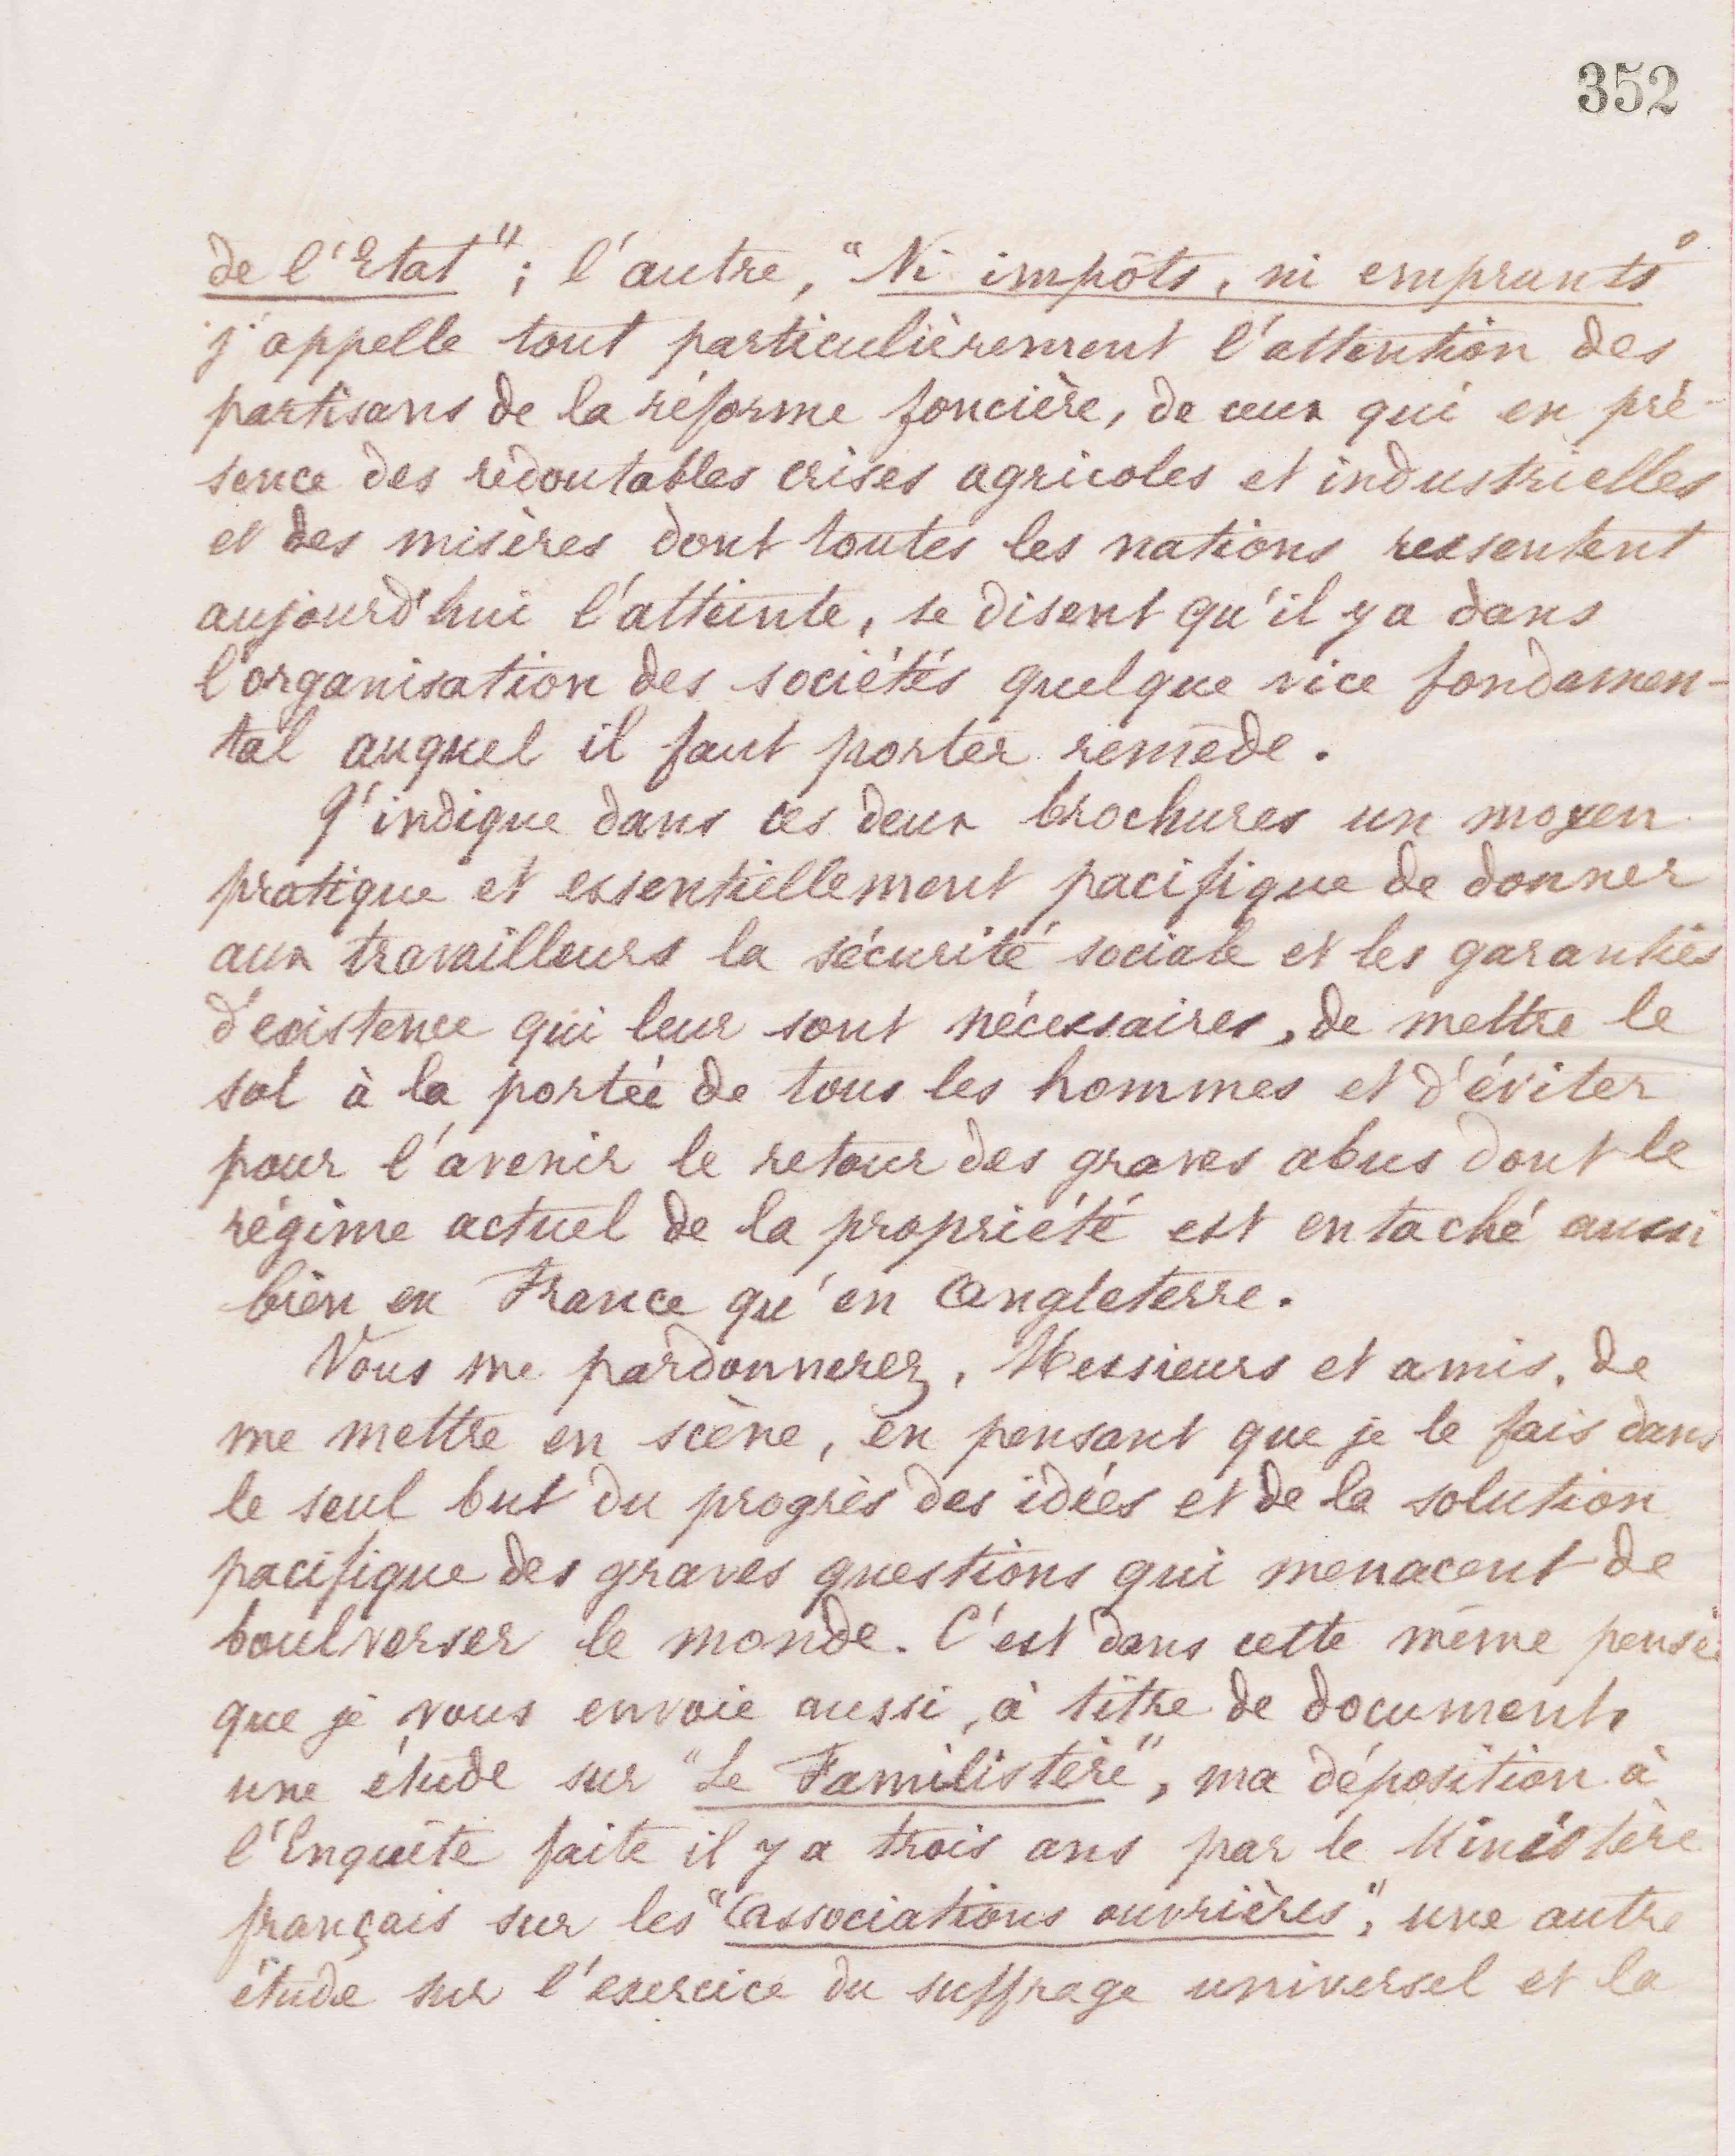 352
de l'Etat"; l'autre, "Ni impôts, ni emprunts"
j'appelle tout particulièrement l'attention des
partisans de la réforme foncière, de ceux qui en pré-
sence des redoutables crises agricoles et industrielles
et des misères dont toutes les nations ressentent
aujourd'hui l'atteinte, se disent qu'il y a dans
l'organisation des sociétés quelque vice fondamen-
tal auquel il faut porter remède.
J'indique dans ces deux brochures un moyen
pratique et essentiellement pacifique de donner
aux travailleurs la sécurité sociale et les garanties
d'existence qui leur sont nécessaires, de mettre le
sol à la portée de tous les hommes et d'éviter
pour l'avenir le retour des graves abus dont le
régime actuel de la propriété est entaché aussi
bien en France qu'en Angleterre.
Vous me pardonnerez, Messieurs et amis, de
me mettre en scène, en pensant que je le fais dans
le seul but du progrès des idées et de la solution
pacifique des graves questions qui menacent de
boulverser le monde. C'est dans cette même pensée
que je vous envoie aussi, à titre de document,
une étude sur "Le Familistère", ma déposition à
l'Enquête faite il y a trois ans par le Ministère
français sur les "Associations ouvrières", une autre
étude sur l'exercice du suffrage universel et la